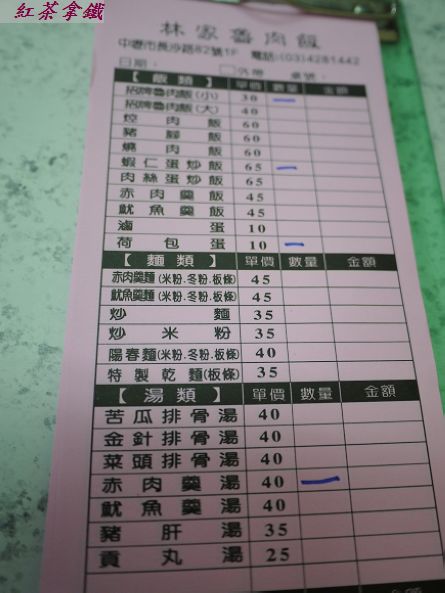 紅茶拿鐵
林家魯肉飯
中壢市長沙路82號1F 電話:(03)4281442
日期: 外帶 桌號:
【飯類】 單價 數量 金額
招牌魯肉飯(小) 30 一
招牌魯肉飯(大) 40
焢肉飯 60
豬腳飯 60
燒肉飯 60
蝦仁蛋炒飯 65 一
肉絲蛋炒飯 65
赤肉羹飯 45
魷魚羹飯 45
滷蛋 10
荷包蛋 10 一
【麵類】 單價 數量 金額
赤肉羹麵(米粉.冬粉.板條) 45
魷魚羹麵(米粉.冬粉.板條) 45
炒麵 35
炒米粉 35
陽春麵(米粉.冬粉.板條) 40
特製乾麵(板條) 35
【湯類】 單價 數量 金額
苦瓜排骨湯 40
金針排骨湯 40
菜頭排骨湯 40
赤肉羹湯 40 一
魷魚羹湯 40
豬肝湯 35
貢丸湯 25